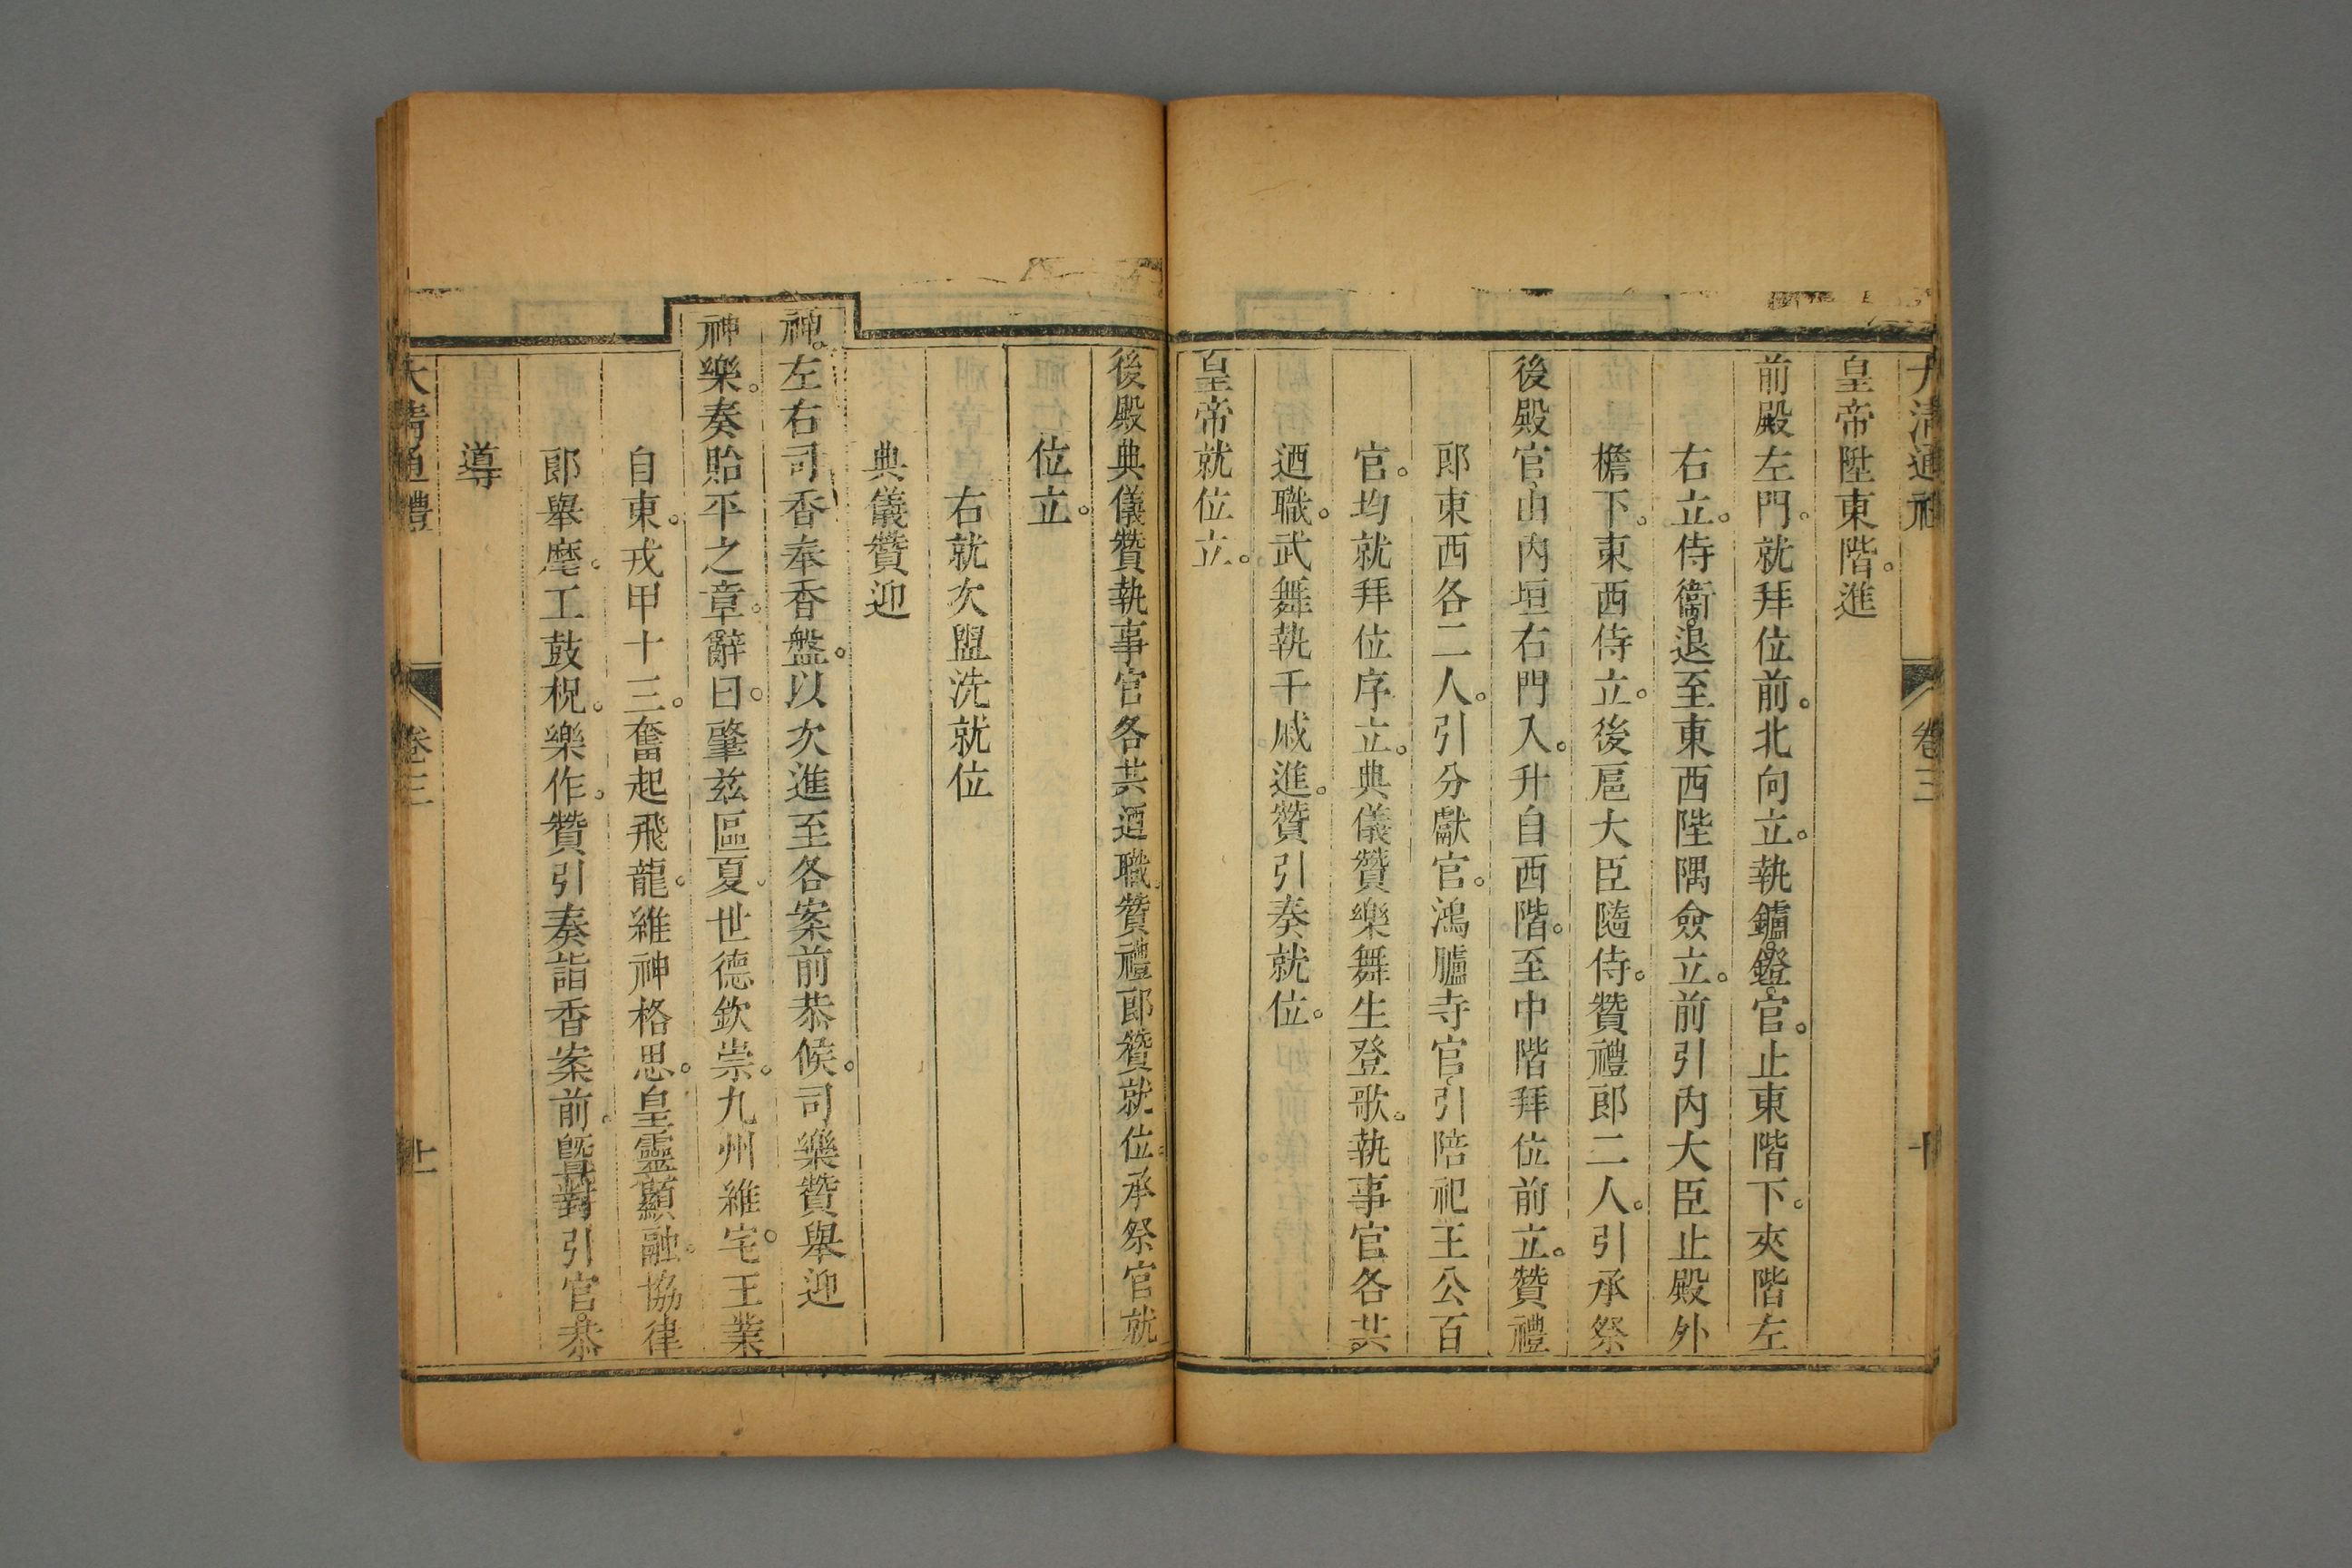 大清通禮 卷三 十
皇帝陞東階。進
前殿左門。就拜位前。北向立。執鑪鐙官。止東階下。夾階左
右立。侍衞退至東西陛隅僉立。前引內大臣止殿外
檐下。東西侍立。後扈大臣隨侍。贊禮郎二人。引承祭
後殿官由內垣右門入。升自西階。至中階拜位前立。贊禮
郎東西各二人。引分獻官。鴻臚寺官引陪祀王公百
官。均就拜位序立。典儀贊樂舞生登歌。執事官各共
迺職。武舞執干戚進。贊引奏就位。
皇帝就位立。
後殿典儀贊執事官各共迺職贊禮郎贊就位承祭官就
位立。
右就次盥洗就位
典儀贊迎
神。左右司香奉香盤。以次進至各案前恭候。司樂贊舉迎
神樂。奏貽平之章。辭曰。肇茲區夏。世德欽崇。九州維宅。王業
自東。戎甲十三。奮起飛龍。維神格思。皇靈顯融。協律
郎舉麾。工鼓柷。樂作。贊引奏詣香案前。暨對引官。恭
導
大清通禮 卷三 十一